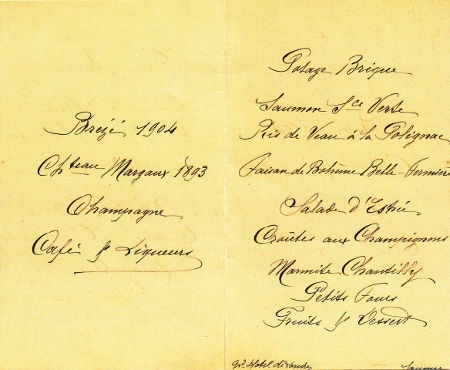 Brézé 1904
Chteau Margaux 1893
Champagne
Café & Liqueurs
Potage Brique
Saumon Sce Verte
Ris de Veau à la Polignac
Faisan de Bohême Belle-Fermière
Salade d'Estrée
Croûtes aux Champignons
Marmite Chantilly
Petits Fours
Fruits & Dessert
Gd Hotel
Saumur